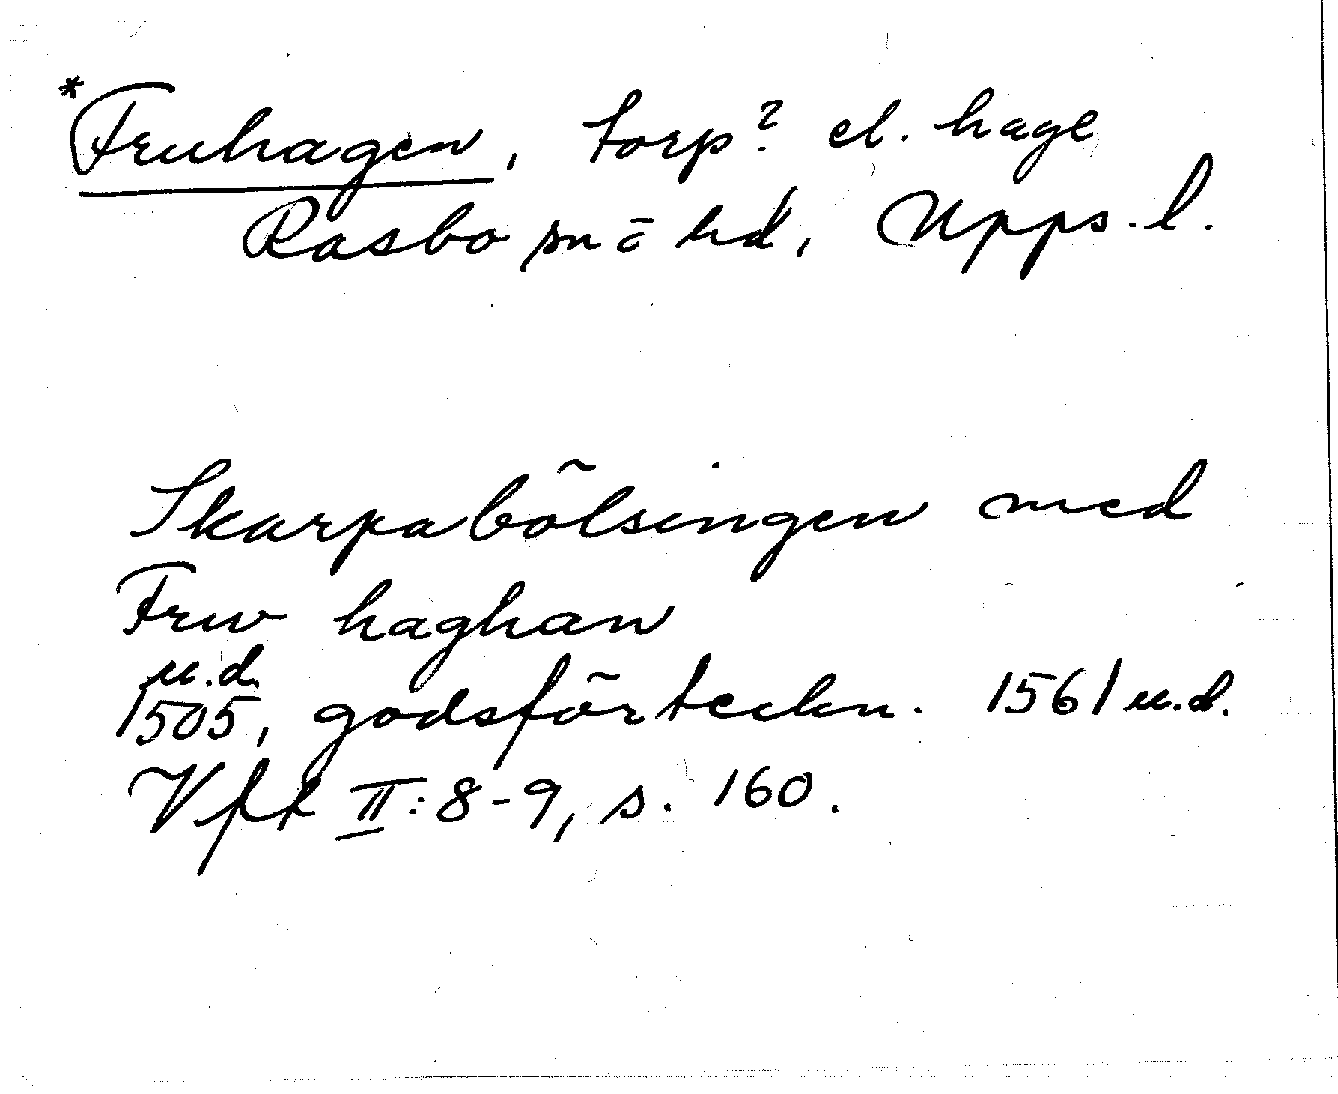 *Fruhagen, torp? el. hage
Rasbo sn o hd, Upps. l.
Skarpabölsingen med
Frw haghan
u.d.
1505, godsförteckn. 1561 u.d.
Vfrk II: 8-9, s. 160.